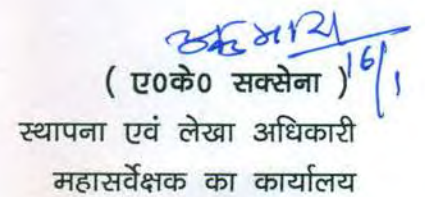 16/1
( ए0के0 सक्सेना )
स्थापना एवं लेखा अधिकारी
महासर्वेक्षक का कार्यालय